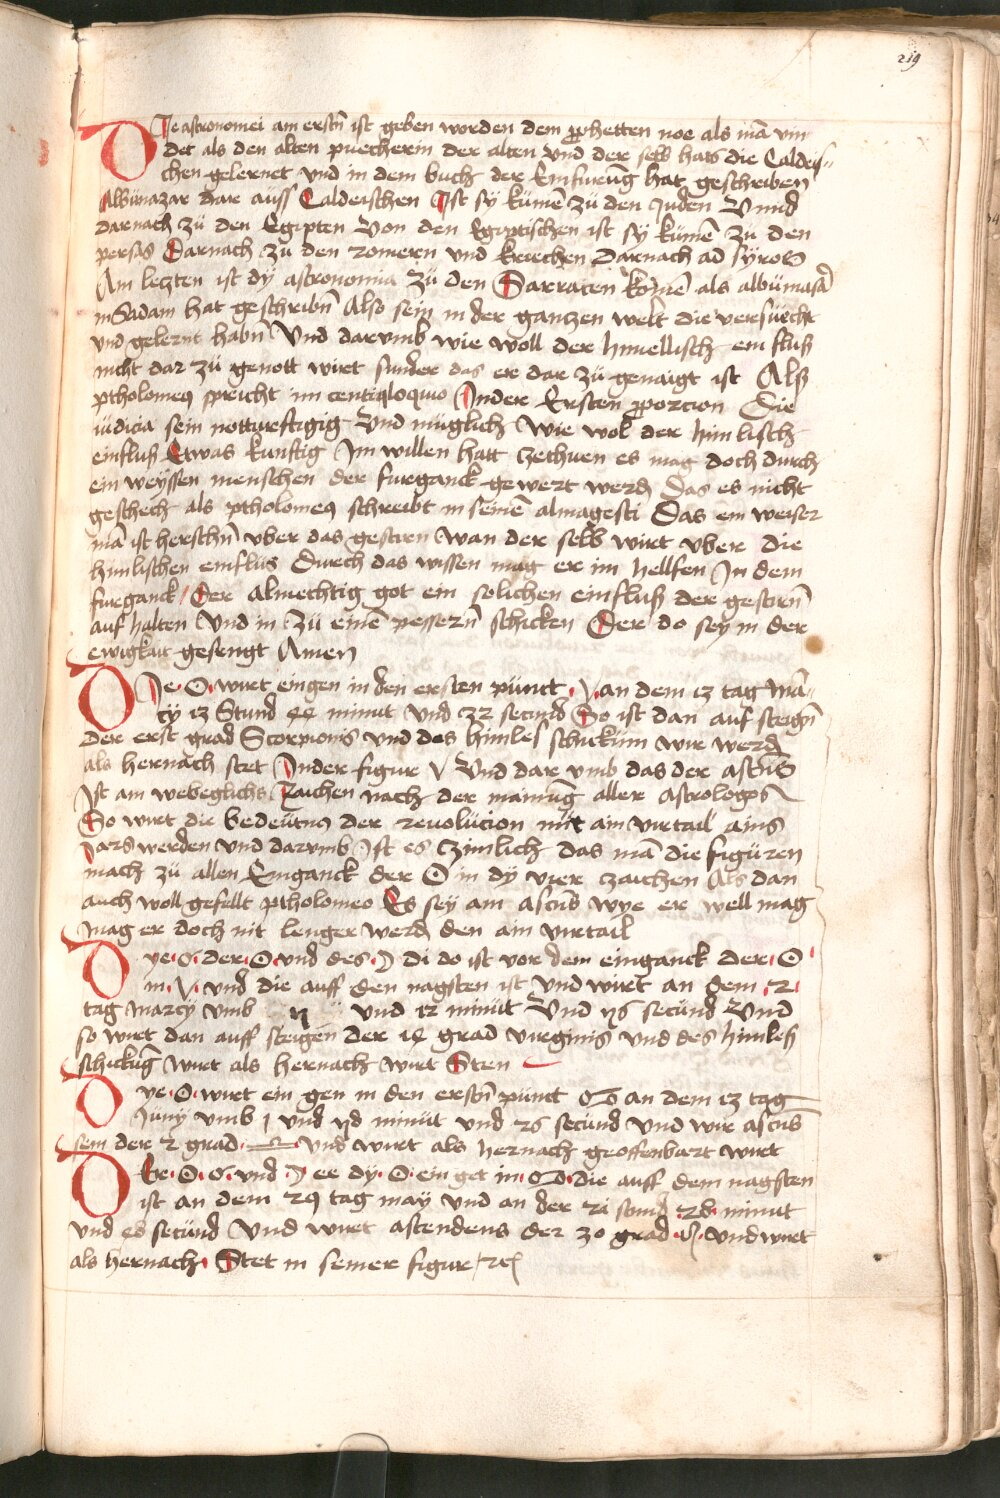 219
DIe astronomei am erstn̄ ist geben worden dem prophetten noe als mā vin
det als den alten puechern der alten vnd der selb hats die Caldeis-
chen gelernet vnd in dem buch der Einfurūg hat geschriben
Albünazar dar auss Caldeischen Ist sy kümē zu den Juden Vnnd
darnach zü den Egipten Von den Egiptischen ist sy kümē zu den
persas Darnach zu den romern vnd kriechen Darnach ad syros
Am letzten ist dy astronomia zü den Sarraten komē als albümasar
in Sadam hat geschribn̄ Also sein in der gantzen welt die versuecht
vnd gelernt habn̄ Vnd darvmb wie woll der himellisch ein fluß
nicht dar zü genott wirt sunder das er dar zü genaigt ist Alß
ptholomeus spricht im centiloquio Inder Ersten proporcion Die
iudicia sein notturftigig Vnd müglich Wie wol der himlisch
einfluß Etwas kunftig Im willen hatt zethuen es mag doch durch
ein weyssen menschen der furganck gewert werden Das es nicht
geschech als ptholomeus schreibt in seinē almagesti Das ein weiser
mā ist herschn̄ vber das gestiren Wan der selb wirt vber die
himlischen einflüs Durch das wissen mag er im hellfen In dem
furganck / Der Almechtig got ein solichen einfluß der gestirn̄
auf halten Vnd in zü einē pessern̄ schicken Der do sey in der
ewigkait gesengt Amen
DIe ☉ wirt eingen in den ersten punct ♈ an dem 13 tag Mar-
cy 13 Stund 44 minut Vnd 32 secund So ist dan auf steign̄
der erst grad Scorpionis vnd des himles schickum wir werden
als hernach stet Inder figur V Vnd dar vmb das der ascens
Ist am webeglichs Zaichen nach der mainūg aller astrologos
So wirt die bedeutnus der revolucion mit ain virtail ains
Jars werden vnd darvmb Ist es czimlich das mā die figuren
mach zü allen Einganck der ☉ in dy vier czaichen Als dan
auch woll gefellt ptholomeo Es sey am ascens wye er well mag
mag er doch nit lenger werden den ain virtail
Dye ☌ der ☉ vnd des ☽ di do ist vor dem einganck der ☉
in ♈ vnd die auff den nagsten ist Vnd wirt an dem 2
tag marcy vmb 11 vnd 12 minüt Vnd 56 secund Vnd
so wirt dan auff steigen der 14 grad virginis vnd des himles
schickūg wirt als hernach wirt Sten
Dye ☉ wirt ein gen in den erstn̄ punct ♋ an dem 13 tag
Juny vmb 1 vnd 58 minüt vnd 26 secund Vnd wir ascens
sein der 2 grad ♎ vnd wirt als hernach geoffenbart wirt
DEr ☉ ☌ vnd ☽ ee dy ☉ ein get in ♋ die auff dem nagsten
ist an dem 29 tag may vnd an der 21 stund 28 minut
vnd 48 secünd Vnd wirt astendens der 30 grad ♑ vnd wirt
als hernach Stet in seiner figur etc